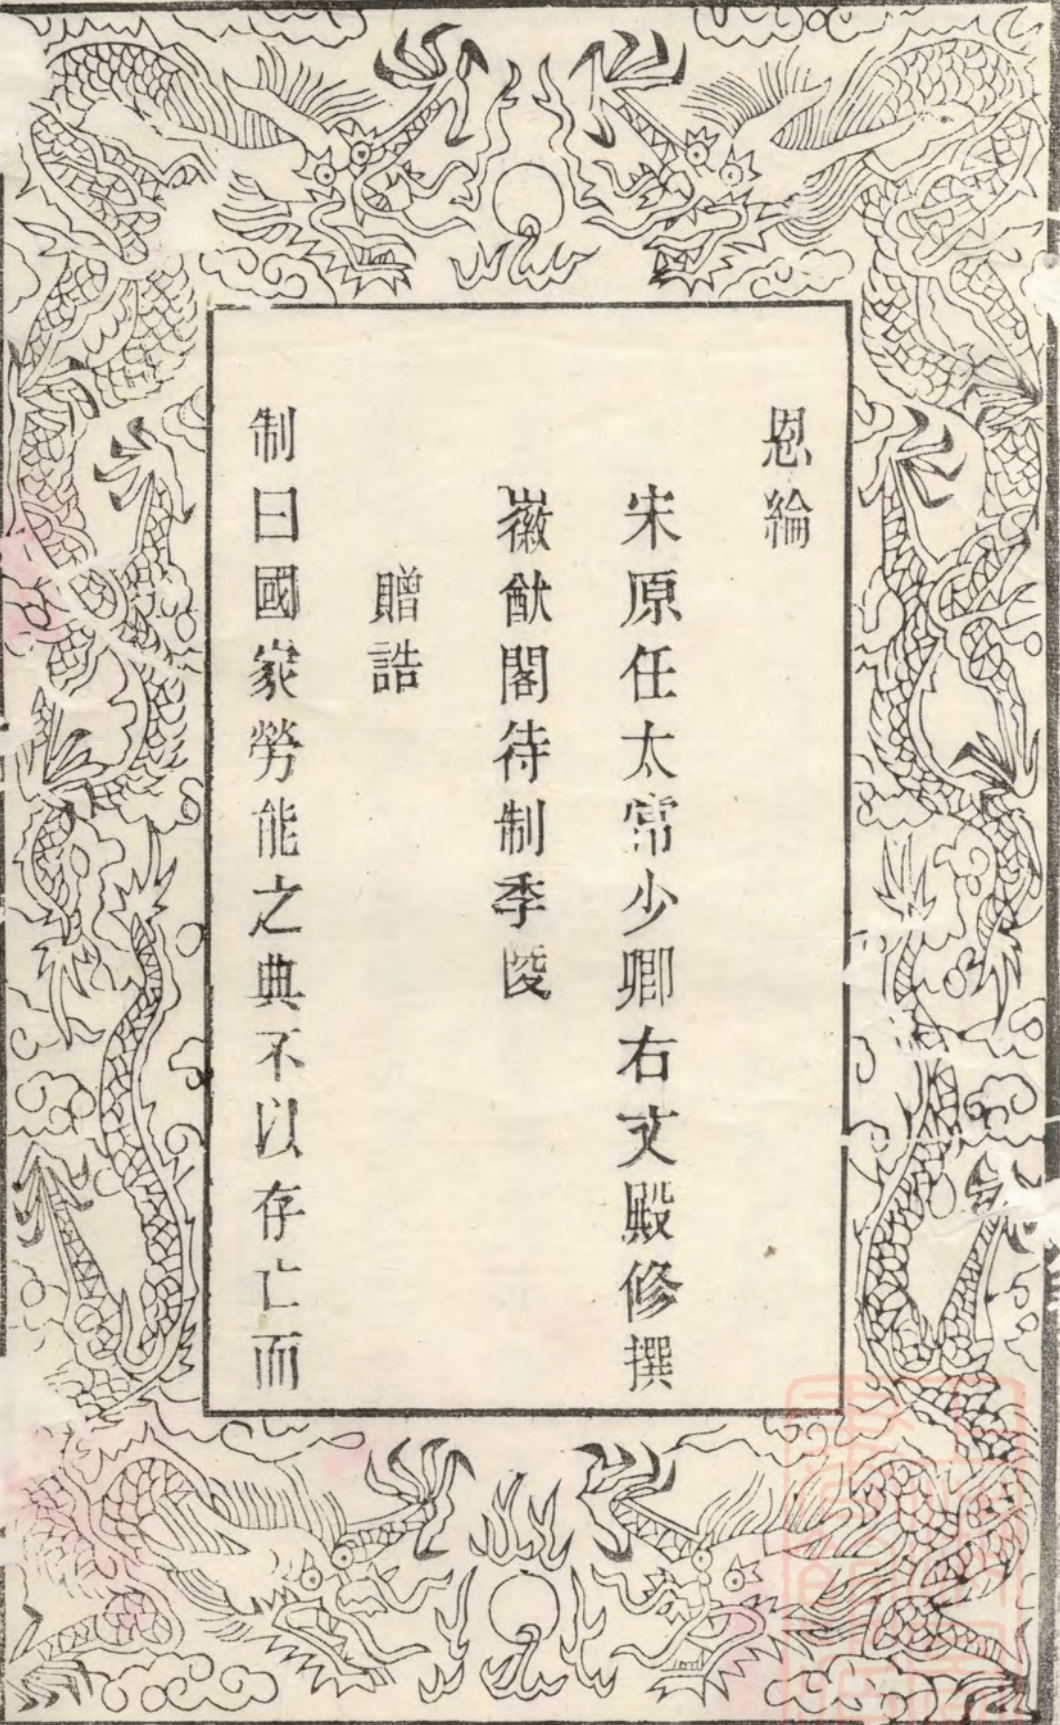 恩綸
宋原任太常少卿右文殿修撰
徽猷閣待制季陵
贈誥
制曰國家勞能之典不以存亡而